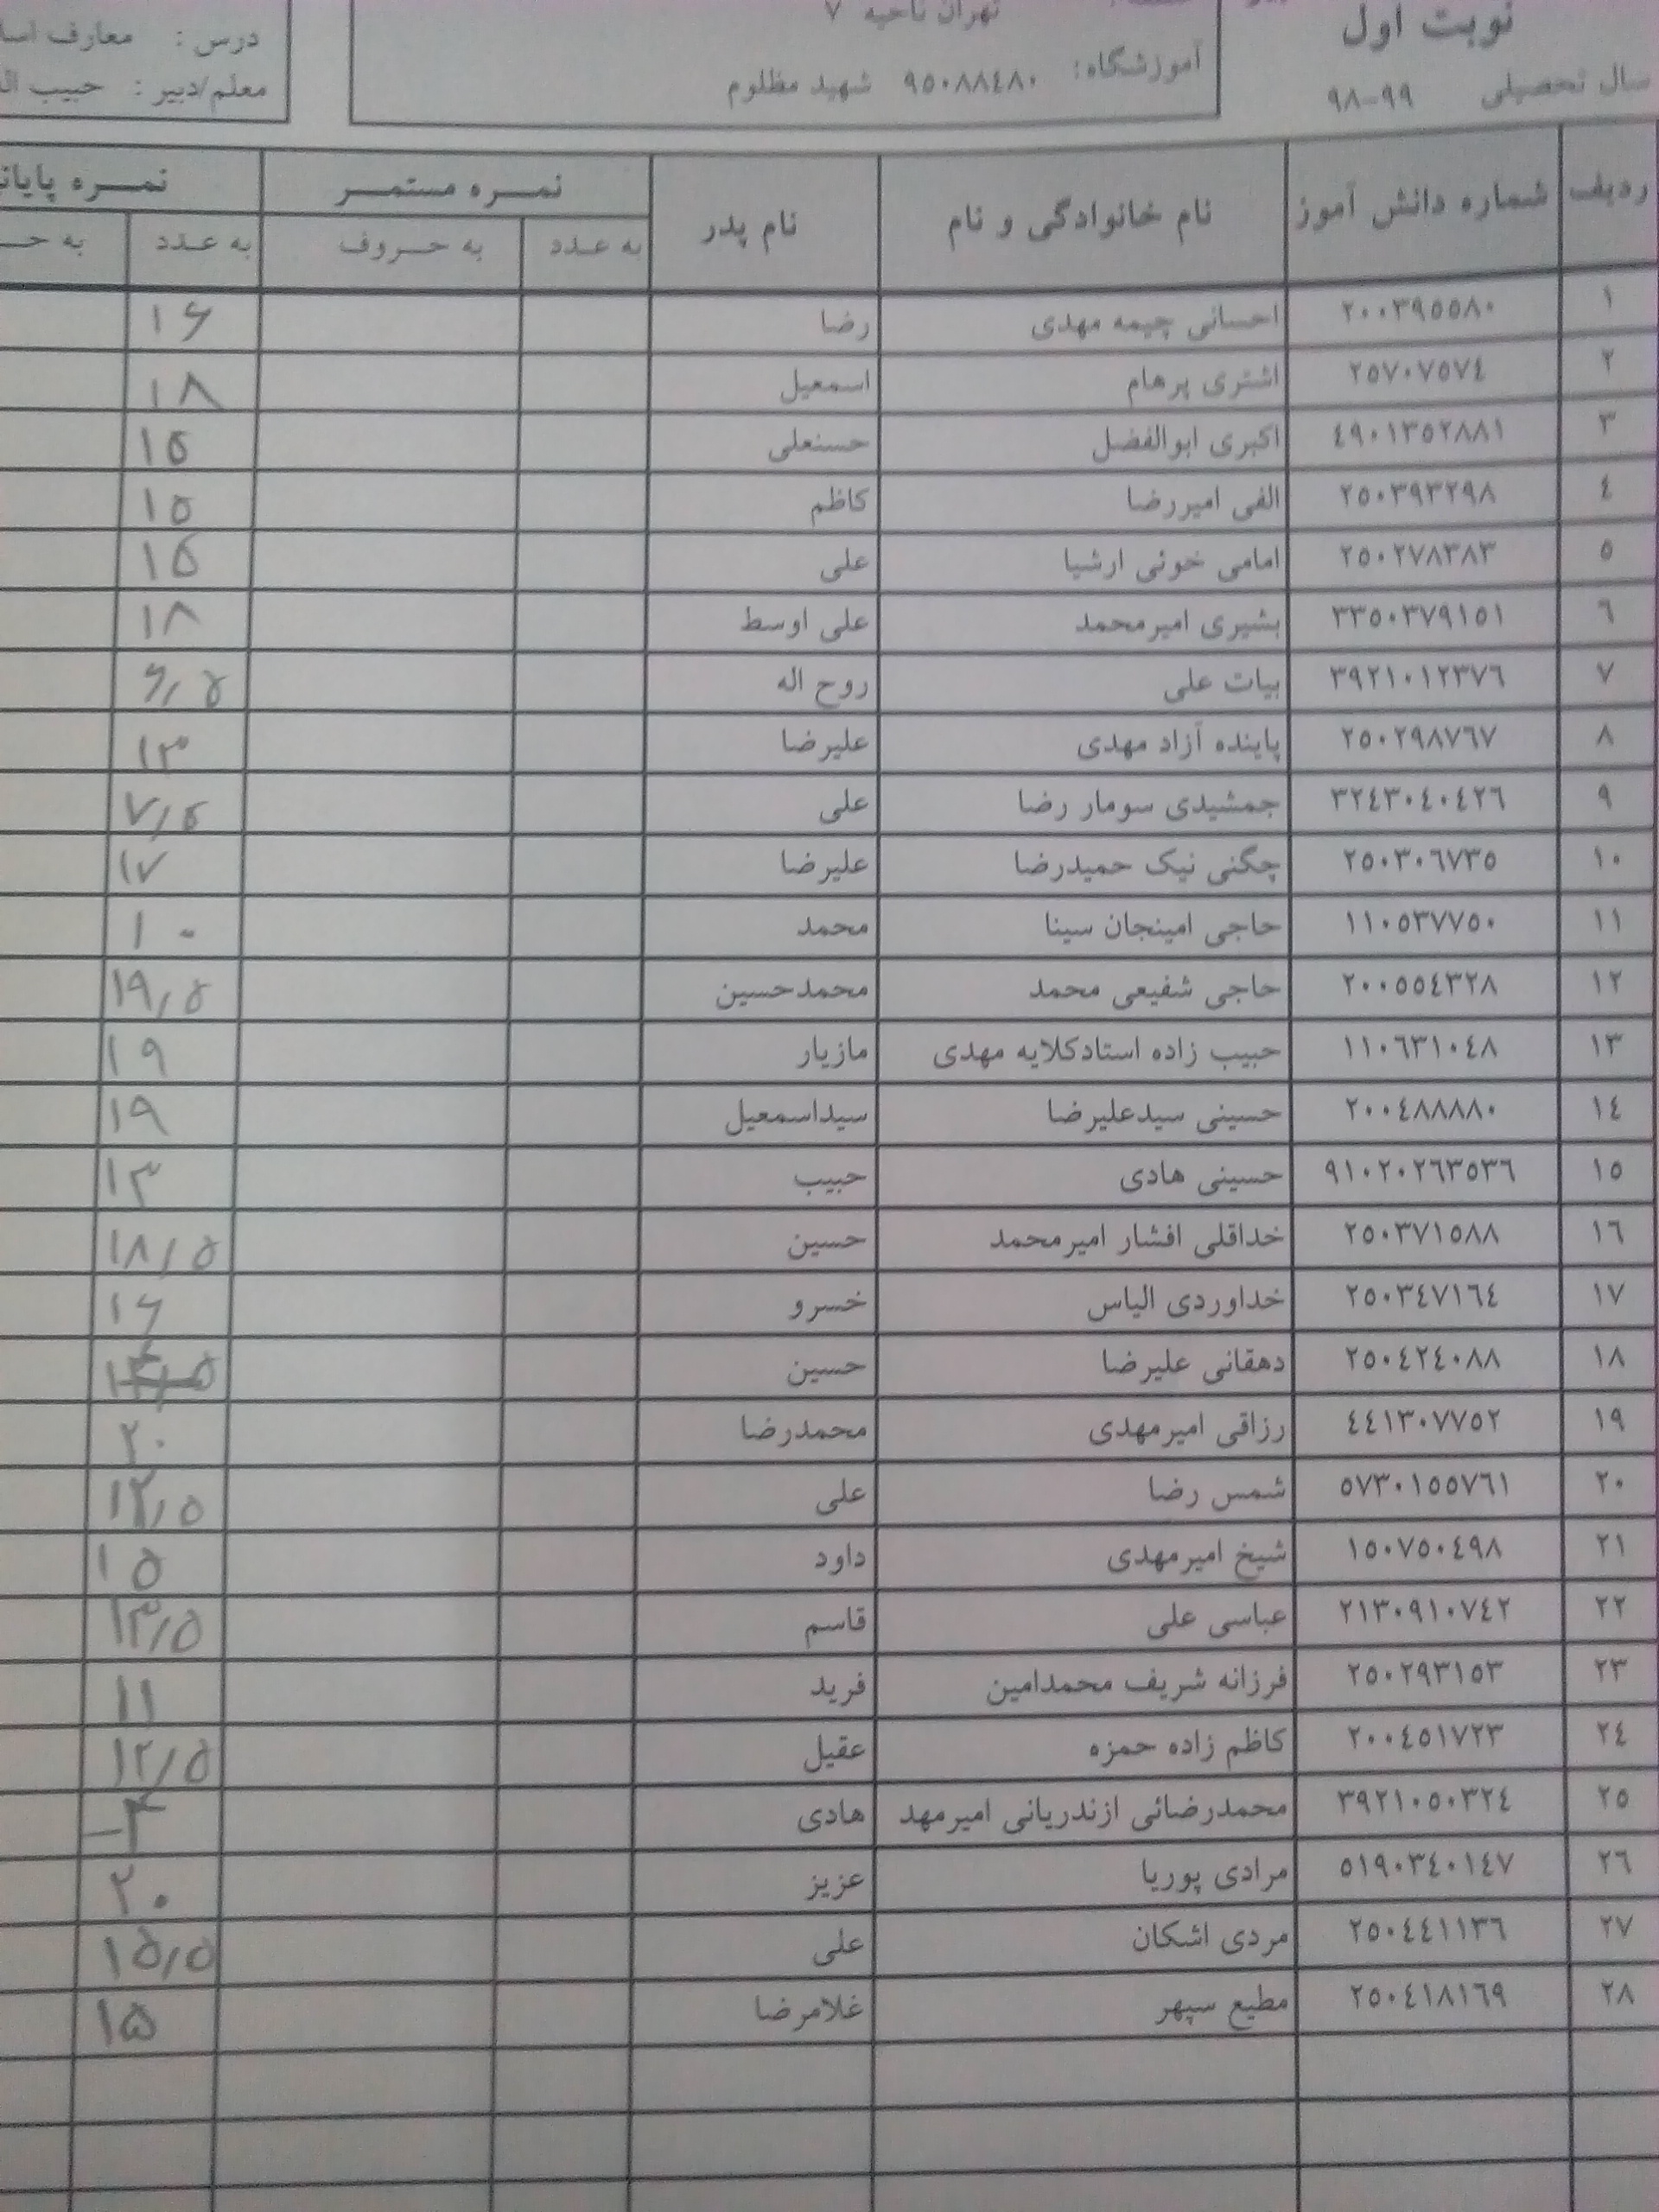 نوبت اول
سال تحصیلی ۹۹-۹۸
تهران ناحیه ۷
آموزشگاه: ۹۵۰۸۸٤۸۰ شهید مظلوم
درس : معارف
معلم/دبیر : حبیب
ردیف شماره دانش آموز نام خانوادگی و نام نام پدر نمـــره مستمـــر نمـــره
به عـدد به حـــروف به عـدد به
۱ ۲۰۰۳۹۵۵۸۰ احسانی چیمه مهدی رضا ۱۶
۲ ۲۵۷۰۷۵۷٤ اشتری پرهام اسمعیل ۱۸
۳ ٤۹۰۱۳۵۲۸۸۱ اکبری ابوالفضل حسنعلی ۱۵
٤ ۲۵۰۳۹۳۲۹۸ الفی امیررضا کاظم ۱۵
۵ ۲۵۰۲۷۸۳۸۳ امامی خوئی ارشیا علی ۱۵
٦ ۳۳۵۰۳۷۹۱۵۱ بشیری امیرمحمد علی اوسط ۱۸
۷ ۳۹۲۱۰۱۲۳۷٦ بیات علی روح اله ۶٫۵
۸ ۲۵۰۲۹۸۷٦۷ پاینده آزاد مهدی علیرضا ۱۳
۹ ۳۲٤۳۰٤۰٤۲٦ جمشیدی سومار رضا علی ۷٫۵
۱۰ ۲۵۰۳۰٦۷۳۵ چگنی نیک حمیدرضا علیرضا ۱۷
۱۱ ۱۱۰۵۳۷۷۵۰ حاجی امینجان سینا محمد ۱۰
۱۲ ۲۰۰۵۵٤۳۲۸ حاجی شفیعی محمد محمدحسین ۱۹٫۵
۱۳ ۱۱۰٦۳۱۰٤۸ حبیب زاده استادکلایه مهدی مازیار ۱۹
۱٤ ۲۰۰٤۸۸۸۸۰ حسینی سیدعلیرضا سیداسمعیل ۱۹
۱۵ ۹۱۰۲۰۲٦۳۵۳٦ حسینی هادی حبیب ۱۳
۱٦ ۲۵۰۳۷۱۵۸۸ خداقلی افشار امیرمحمد حسین ۱۸٫۵
۱۷ ۲۵۰۳٤۷۱٦٤ خداوردی الیاس خسرو ۱۶
۱۸ ۲۵۰٤۲٤۰۸۸ دهقانی علیرضا حسین
۱۹ ٤٤۱۳۰۷۷۵۲ رزاقی امیرمهدی محمدرضا ۲۰
۲۰ ۵۷۳۰۱۵۵۷٦۱ شمس رضا علی
۲۱ ۱۵۰۷۵۰٤۹۸ شیخ امیرمهدی داود ۱۵
۲۲ ۲۱۳۰۹۱۰۷٤۲ عباسی علی قاسم ۱۳٫۵
۲۳ ۲۵۰۲۹۳۱۵۳ فرزانه شریف محمدامین فرید ۱۱
۲٤ ۲۰۰٤۵۱۷۲۳ کاظم زاده حمزه عقیل ۱۲٫۵
۲۵ ۳۹۲۱۰۵۰۳۲٤ محمدرضائی ازندریانی امیرمهد هادی
۲٦ ۵۱۹۰۳٤۰۱٤۷ مرادی پوریا عزیز ۲۰
۲۷ ۲۵۰٤٤۱۱۳٦ مردی اشکان علی ۱۵٫۵
۲۸ ۲۵۰٤۱۸۱٦۹ مطیع سپهر غلامرضا ۱۵